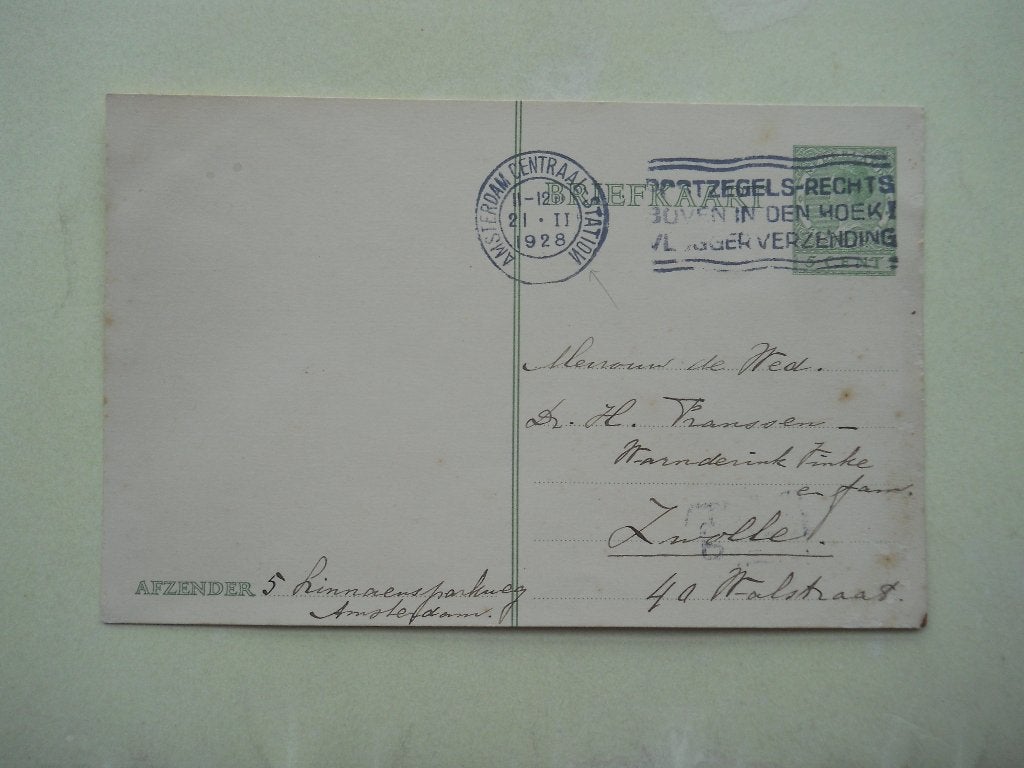 AMSTERDAM CENTRAAL STATION
21 · II
1928
BRIEFKAART
POSTZEGELS-RECHTS
BOVEN IN DEN HOEK!
VLUGGER VERZENDING
5 CENT
Mevrouw de Wed.
Dr. H. Franssen –
Warnderink Vinke
en fam.
Zwolle.
4a Walstraat.
AFZENDER 5 Linnaeusparkweg
Amsterdam.